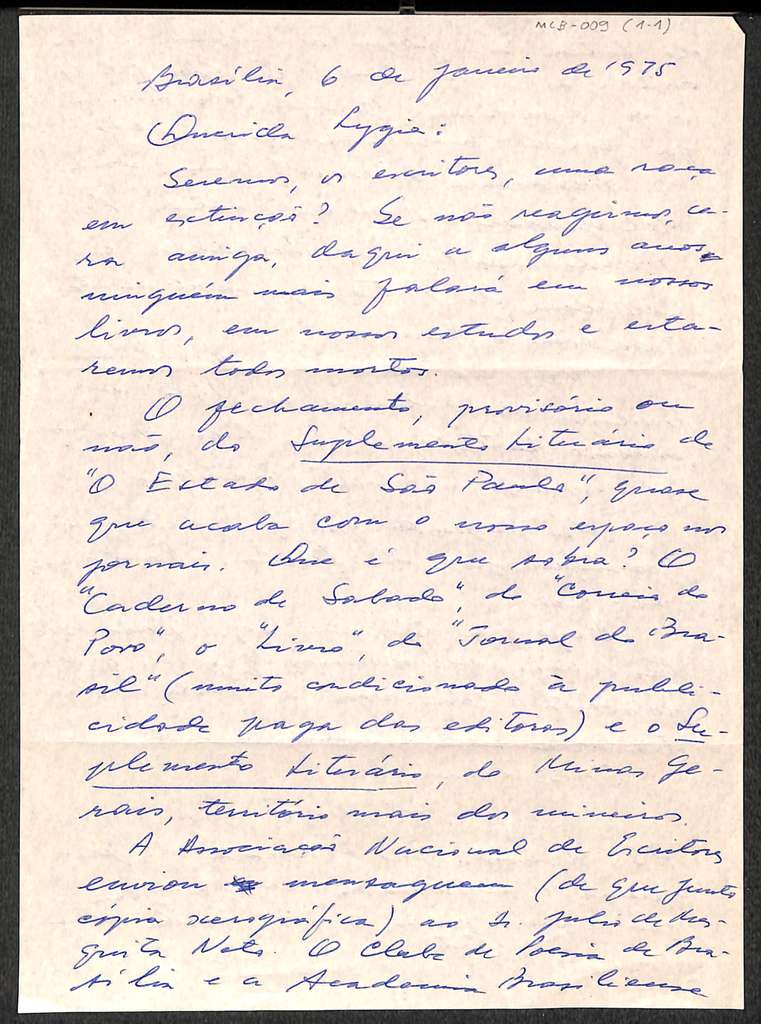 MLB-009 (1-1)
Brasília, 6 de janeiro de 1975
Querida Lygia:
Seremos, os escritores, uma raça
em extinção? Se não reagirmos, ca-
ra amiga, daqui a alguns anos,
ninguém mais falará em nossos
livros, em nossos estudos e esta-
remos todos mortos.
O fechamento, provisório ou
não, do Suplemento Literário de
"O Estado de São Paulo", quase
que acaba com o nosso espaço nos
jornais. Que é que sobra? O
"Caderno de Sábado", do "Correio do
Povo", o "Livro", do "Jornal do Bra-
sil" (muito condicionado à publi-
cidade paga das editoras) e o Su-
plemento Literário, do Minas Ge-
rais, território mais dos mineiros.
A Associação Nacional de Escritores
enviou mensaguem (de que junto
cópia xerográfica) ao Sr. Julio de Mes-
quita Neto. O Clube de Poesia de Bra-
sília e a Academia Brasiliense